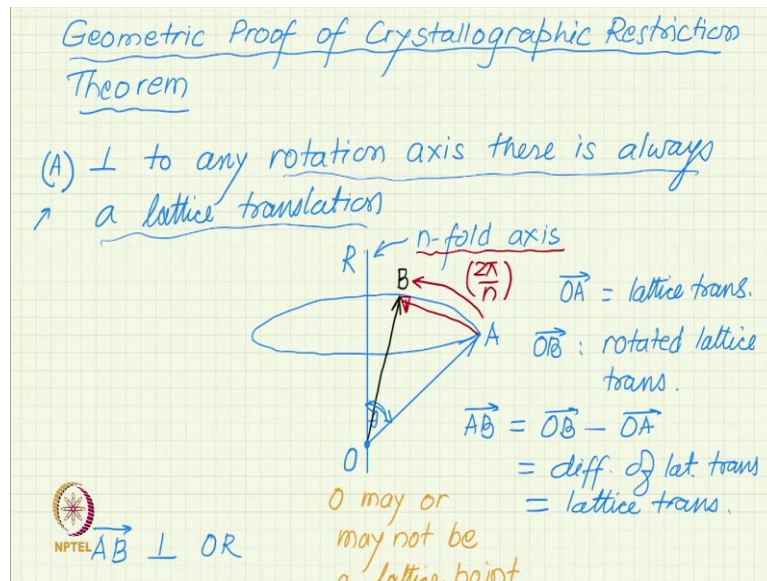 Geometric Proof of Crystallographic Restriction
Theorem
(A) ⊥ to any rotation axis there is always
a lattice translation
n-fold axis
R
B
(2π/n)
A
O
OA = lattice trans.
OB : rotated lattice
trans.
AB = OB - OA
= diff. of lat. trans
= lattice trans.
O may or
may not be
a lattice point
NPTEL
AB ⊥ OR